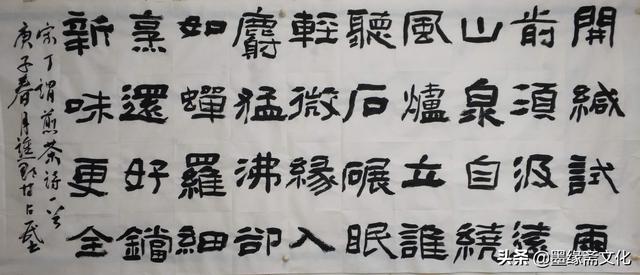 開緘試雨
前須汲遠
山泉自繞
風爐立誰
聽石碾眠
輕微緣入
麝猛沸卻
如蟬羅細
烹還好鐺
新味更全
宋丁謂煎茶詩一首
庚子春月
头条 @墨缘斋文化